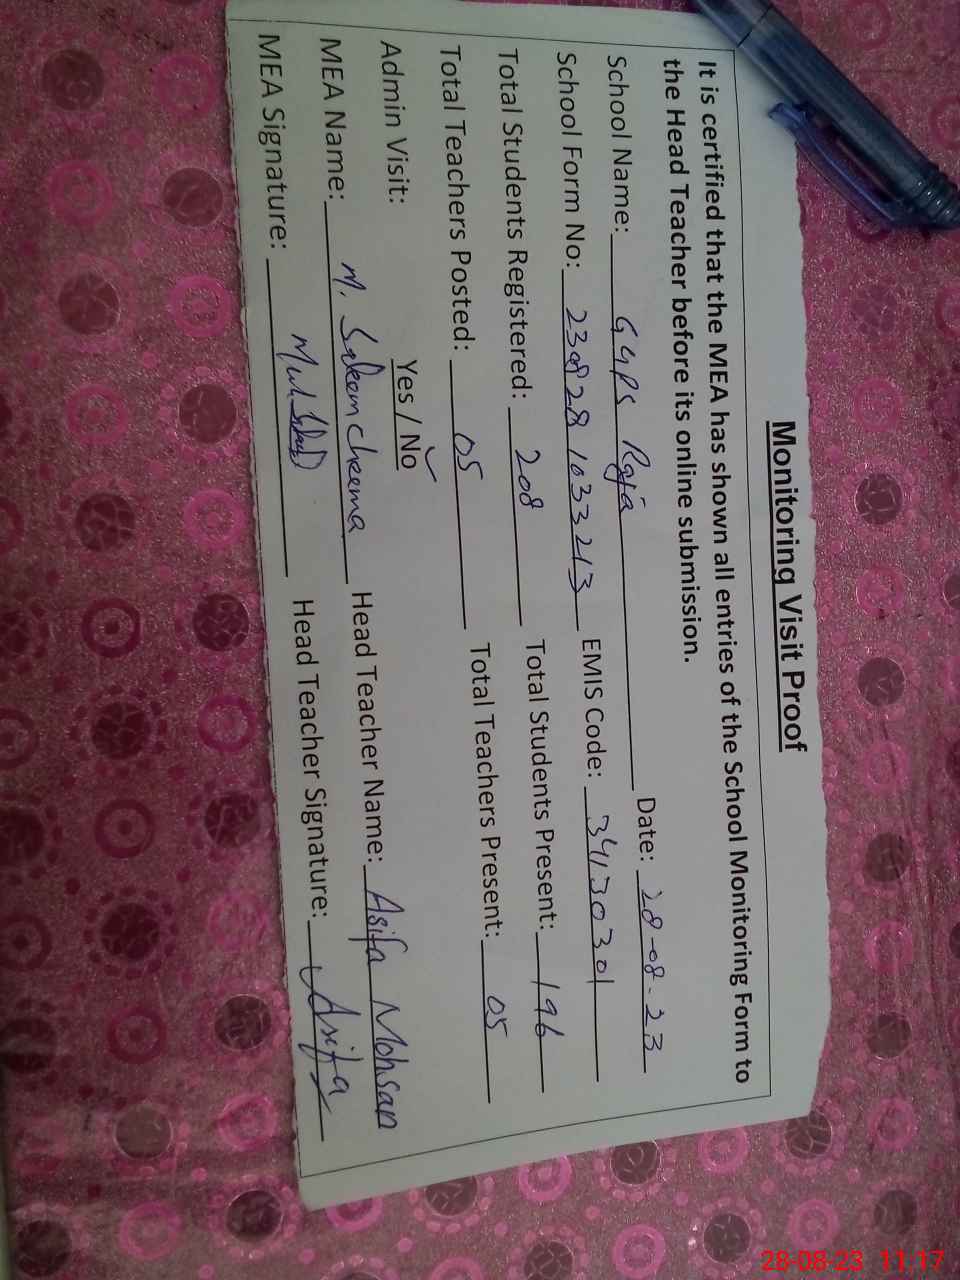 Monitoring Visit Proof
It is certified that the MEA has shown all entries of the School Monitoring Form to
the Head Teacher before its online submission.
School Name: GGPS Raja Date: 28-08-23
School Form No: 230828 1033213 EMIS Code: 34130301
Total Students Registered: 208 Total Students Present: 196
Total Teachers Posted: 05 Total Teachers Present: 05
Admin Visit: Yes / No ✓
MEA Name: M. Saleem cheema Head Teacher Name: Asifa Mohsan
MEA Signature: Head Teacher Signature: Asifa
28-08-23 11:17